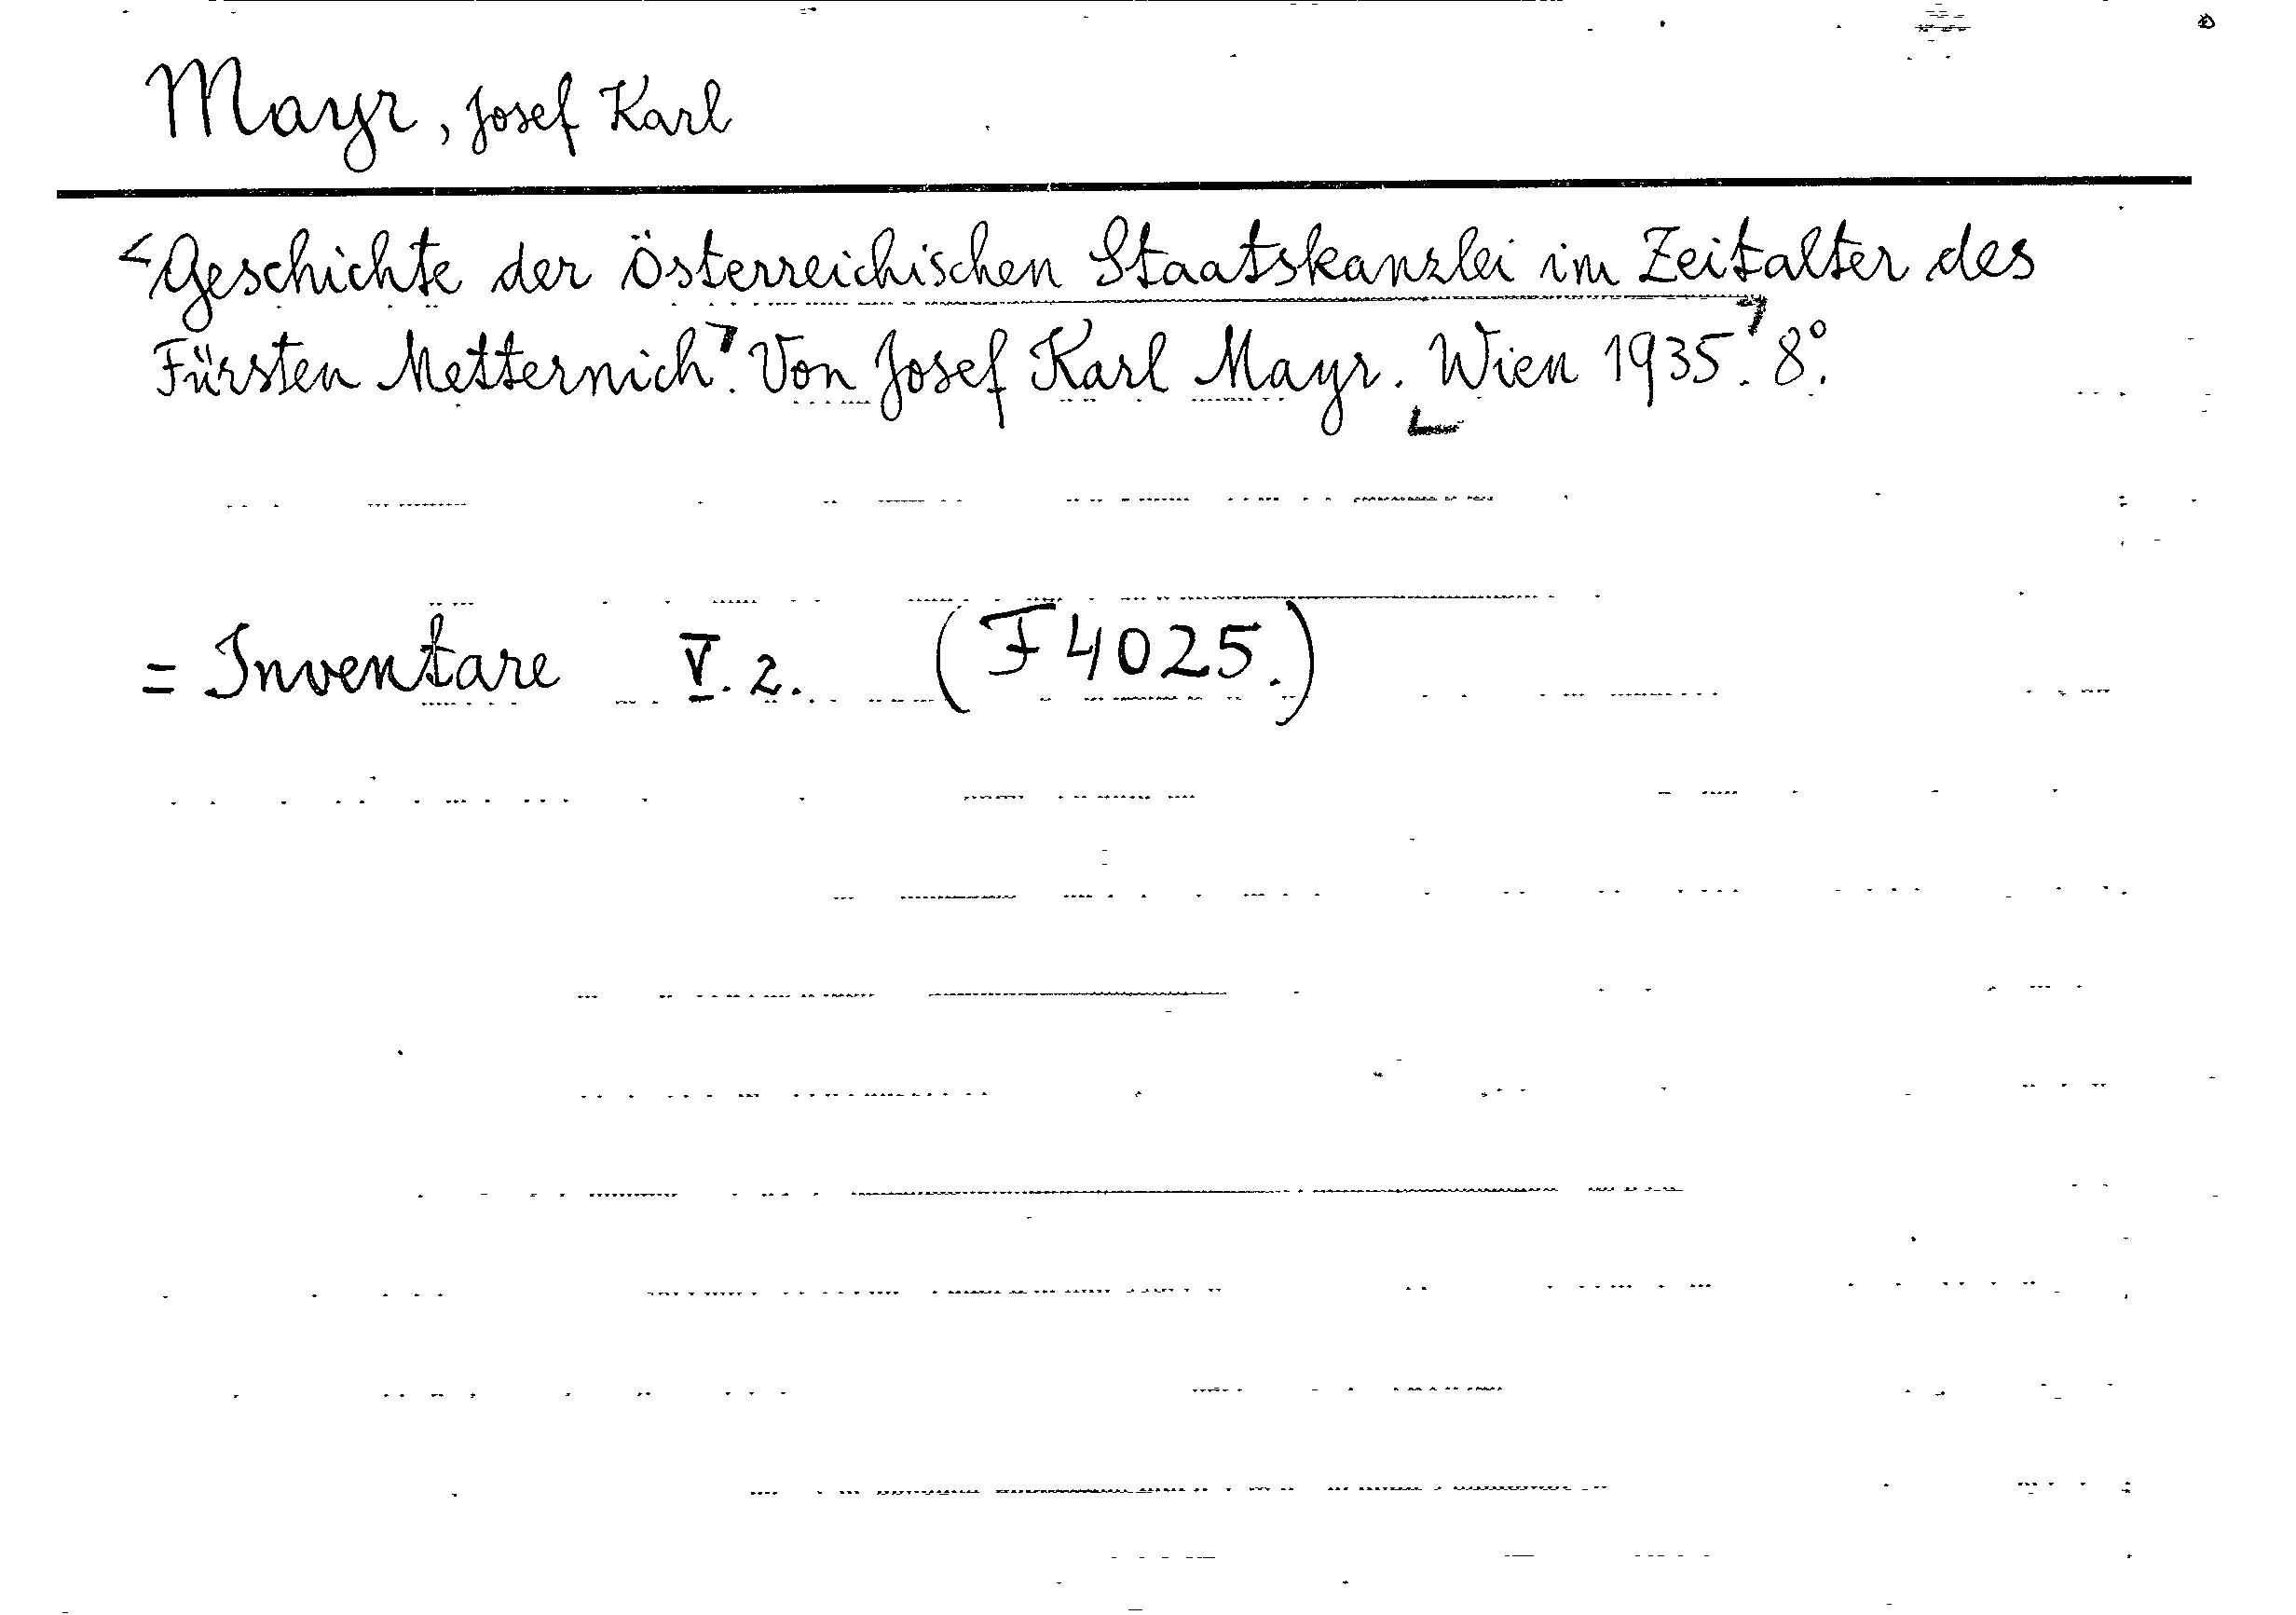 Mayr, Josef Karl
<Geschichte der Österreichischen Staatskanzlei im Zeitalter des
Fürsten Metternich⌝. Von Josef Karl Mayr. ⌞Wien 1935⌝. 8°.
= Inventare V. 2. (F 4025.)